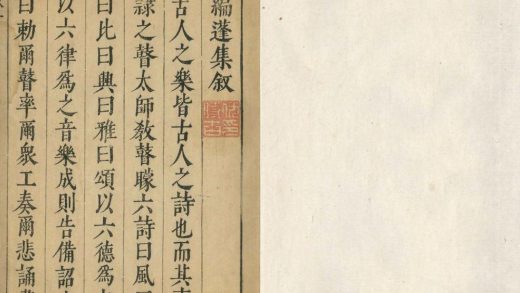 編蓬集叙
古人之樂皆古人之詩也而其
隷之瞽太師教瞽矇六詩曰風
曰比曰興曰雅曰頌以六德爲
以六律爲之音樂成則告備詔
曰勅爾瞽率爾衆工奏爾悲誦